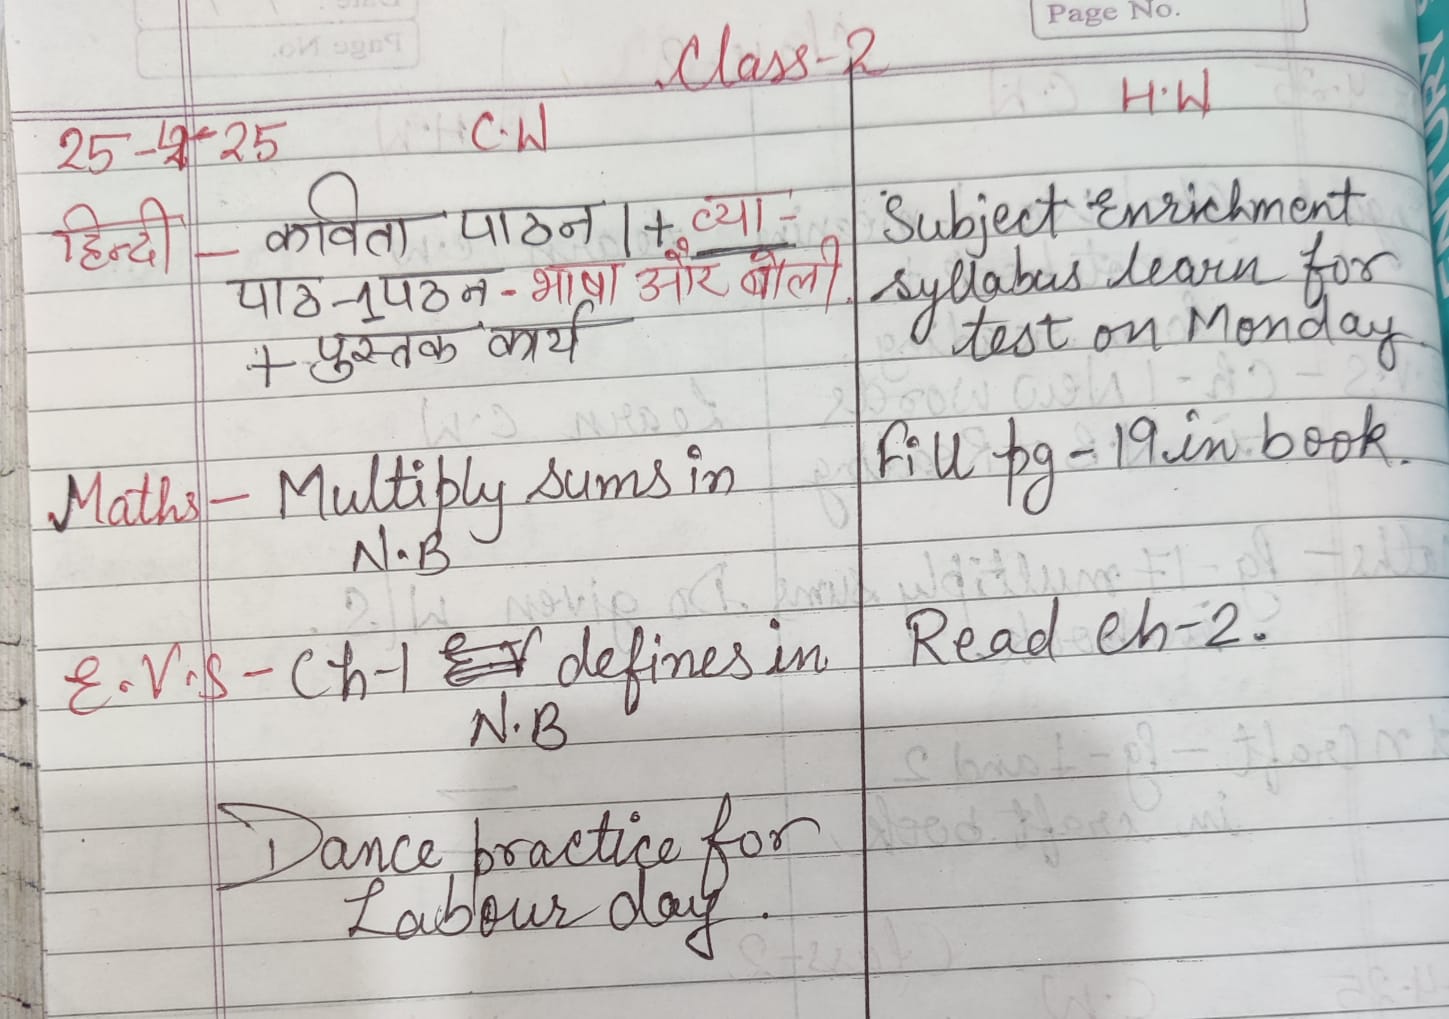 Page No.
Class-2
25-4-25 C.W H.W
हिन्दी - कविता पाठन । + व्या-
पाठ-1 पठन - भाषा और बोली.
+ पुस्तक कार्य
Subject Enrichment
syllabus learn for
test on Monday.
Maths - Multiply sums in
N.B
Fill pg - 19 in book.
E.V.S - Ch-1 defines in
N.B
Read Ch-2.
Dance practice for
Labour day.